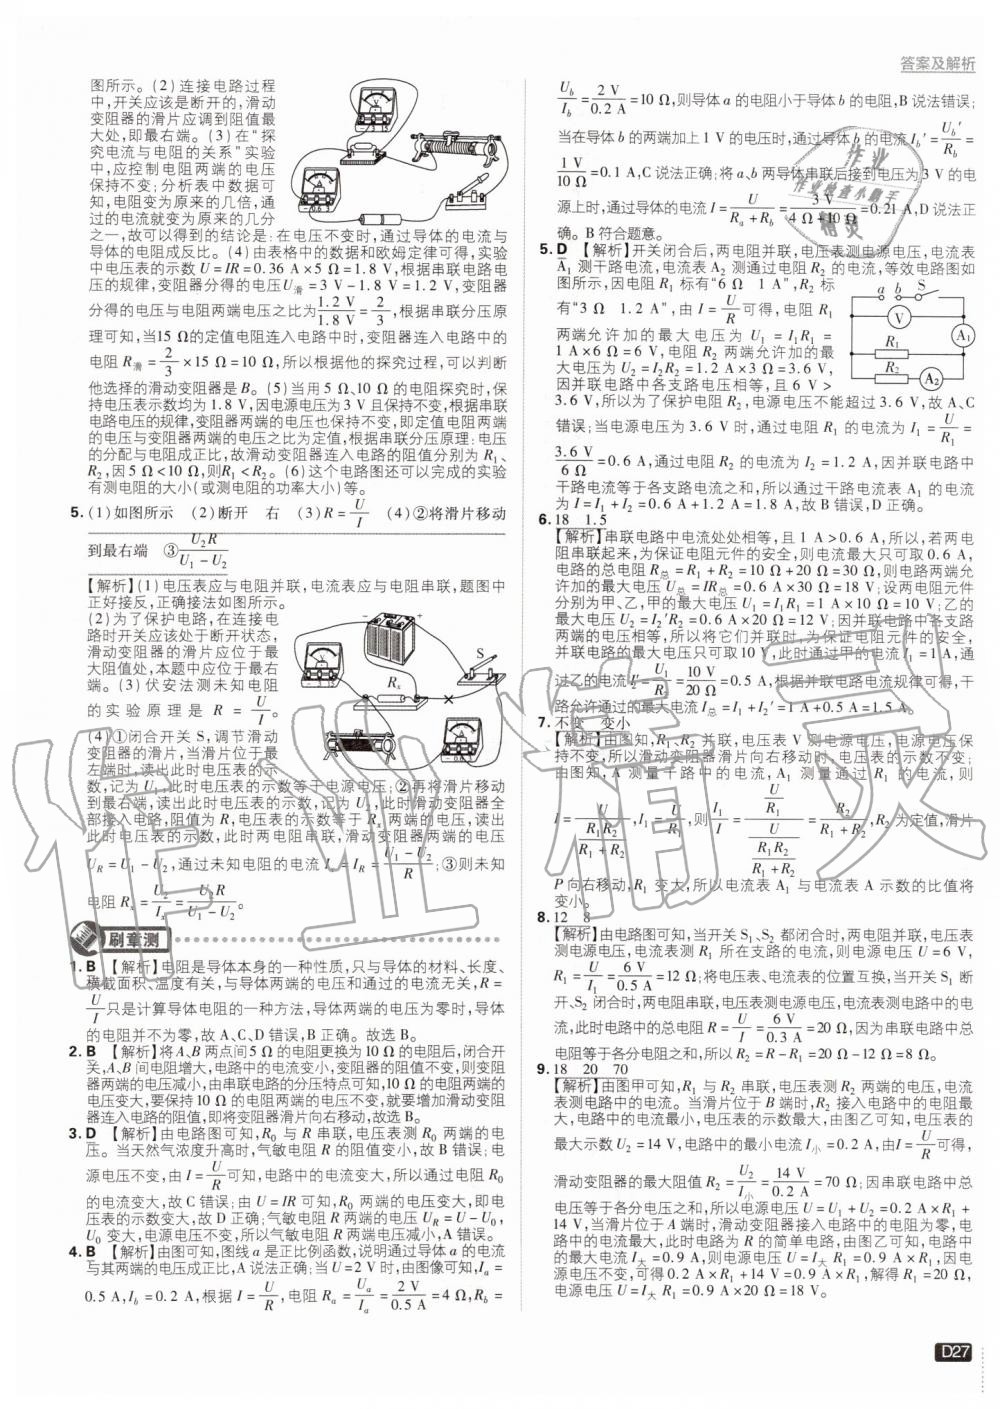 答案及解析
图所示。(2)连接电路过程
中,开关应该是断开的,滑动
变阻器的滑片应调到阻值最
大处,即最右端。(3)在“探
究电流与电阻的关系”实验
中,应控制电阻两端的电压
保持不变;分析表中数据可
知,电阻变为原来的几倍,通
过的电流就变为原来的几分
之一,故可以得到的结论是:在电压不变时,通过导体的电流与
导体的电阻成反比。(4)由表格中的数据和欧姆定律可得,实验
中电压表的示数U=IR=0.36 A×5 Ω=1.8 V,根据串联电路电
压的规律,变阻器分得的电压U滑=3 V-1.8 V=1.2 V,变阻器
分得的电压与电阻两端电压之比为1.2 V/1.8 V=2/3,根据串联分压原
理可知,当15 Ω的定值电阻连入电路中时,变阻器连入电路中的
电阻R滑=2/3×15 Ω=10 Ω,所以根据他的探究过程,可以判断
他选择的滑动变阻器是B。(5)当用5 Ω、10 Ω的电阻探究时,保
持电压表示数均为1.8 V,因电源电压为3 V且保持不变,根据串联
电路电压的规律,变阻器两端的电压也保持不变,即定值电阻两端
的电压与变阻器两端的电压之比为定值,根据串联分压原理:电压
的分配与电阻成正比,故滑动变阻器连入电路的阻值分别为R₁、
R₂,因5 Ω<10 Ω,则R₁<R₂。(6)这个电路图还可以完成的实验
有测电阻的大小(或测电阻的功率大小)等。
5. (1)如图所示 (2)断开 右 (3)R=U/I (4)②将滑片移动
到最右端 ③U₂R/(U₁-U₂)
【解析】(1)电压表应与电阻并联,电流表应与电阻串联,题图中
正好接反,正确接法如图所示。
(2)为了保护电路,在连接电
路时开关应该处于断开状态,
滑动变阻器的滑片应位于最
大阻值处,本题中应位于最右
端。(3)伏安法测未知电阻
的实验原理是R=U/I。
(4)①闭合开关S,调节滑动
变阻器的滑片,当滑片位于最
左端时,读出此时电压表的示
数,记为U₁,此时电压表的示数等于电源电压;②再将滑片移动
到最右端,读出此时电压表的示数,记为U₂,此时滑动变阻器全
部接入电路,阻值为R,电压表的示数等于Rₓ两端的电压,读出
此时电压表的示数,此时两电阻串联,滑动变阻器两端的电压
U_R=U₁-U₂,通过未知电阻的电流Iₓ=I_R=(U₁-U₂)/R;③则未知
电阻Rₓ=U₂/Iₓ=U₂R/(U₁-U₂)。
刷章测
1. B 【解析】电阻是导体本身的一种性质,只与导体的材料、长度、
横截面积、温度有关,与导体两端的电压和通过的电流无关,R=
U/I只是计算导体电阻的一种方法,导体两端的电压为零时,导体
的电阻并不为零,故A、C、D错误,B正确。故选B。
2. B 【解析】将A、B两点间5 Ω的电阻更换为10 Ω的电阻后,闭合开
关,A、B间电阻增大,电路中的电流变小,变阻器的阻值不变,则变阻
器两端的电压减小,由串联电路的分压特点可知,10 Ω的电阻两端的
电压变大,要保持10 Ω的电阻两端的电压不变,就要增加滑动变阻
器连入电路的阻值,即将变阻器滑片向右移动,故选B。
3. D 【解析】由电路图可知,R₀与R串联,电压表测R₀两端的电
压。当天然气浓度升高时,气敏电阻R的阻值变小,故B错误;电
源电压不变,由I=U/R可知,电路中的电流变大,所以通过电阻R₀
的电流变大,故C错误;由U=IR可知,R₀两端的电压变大,即电
压表的示数变大,故D正确;气敏电阻R两端的电压U_R=U-U₀,
U₀变大,电源电压不变,所以气敏电阻R两端的电压减小,A错误。
4. B 【解析】由图可知,图线a是正比例函数,说明通过导体a的电流
与其两端的电压成正比,A说法正确;当U=2 V时,由图像可知,Iₐ=
0.5 A,I_b=0.2 A,根据I=U/R,电阻Rₐ=Uₐ/Iₐ=2 V/0.5 A=4 Ω,R_b=
U_b/I_b=2 V/0.2 A=10 Ω,则导体a的电阻小于导体b的电阻,B说法错误;
当在导体b的两端加上1 V的电压时,通过导体b的电流I_b′=U_b′/R_b=
1 V/10 Ω=0.1 A,C说法正确;将a、b两导体串联后接到电压为3 V的电
源上时,通过导体的电流I=U/(Rₐ+R_b)=3 V/(4 Ω+10 Ω)=0.21 A,D说法正
确。B符合题意。
5. D 【解析】开关闭合后,两电阻并联,电压表测电源电压,电流表
A₁测干路电流,电流表A₂测通过电阻R₂的电流,等效电路图如
图所示,因电阻R₁标有“6 Ω 1 A”,R₂标
有“3 Ω 1.2 A”,由I=U/R可得,电阻R₁
两端允许加的最大电压为U₁=I₁R₁=
1 A×6 Ω=6 V,电阻R₂两端允许加的最
大电压为U₂=I₂R₂=1.2 A×3 Ω=3.6 V,
因并联电路中各支路电压相等,且6 V>
3.6 V,所以为了保护电阻R₂,电源电压不能超过3.6 V,故A、C
错误;当电源电压为3.6 V时,通过电阻R₁的电流为I₁=U/R₁=
3.6 V/6 Ω=0.6 A,通过电阻R₂的电流为I₂=1.2 A,因并联电路中
干路电流等于各支路电流之和,所以通过干路电流表A₁的电流
为I=I₁+I₂=0.6 A+1.2 A=1.8 A,故B错误,D正确。
6. 18 1.5
【解析】串联电路中电流处处相等,且1 A>0.6 A,所以,若两电
阻串联起来,为保证电阻元件的安全,则电流最大只可取0.6 A,
电路的总电阻R总=R₁+R₂=10 Ω+20 Ω=30 Ω,则电路两端允
许加的最大电压U总=IR总=0.6 A×30 Ω=18 V;设两电阻元件
分别为甲、乙,甲的最大电压U₁=I₁R₁=1 A×10 Ω=10 V;乙的
最大电压U₂=I₂′R₂=0.6 A×20 Ω=12 V;因并联电路中各支路
两端的电压相等,所以将它们并联时,为保证电阻元件的安全,
并联电路的最大电压只可取10 V,此时通过甲的电流I₁=1 A,通
过乙的电流I₂′=U₁/R₂=10 V/20 Ω=0.5 A,根据并联电路电流规律可得,干
路允许通过的最大电流I总=I₁+I₂′=1 A+0.5 A=1.5 A。
7. 不变 变小
【解析】由图知,R₁、R₂并联,电压表V测电源电压,电源电压保
持不变,所以移动滑动变阻器滑片向右移动时,电压表的示数不变;
由图知,A测量干路中的电流,A₁测量通过R₁的电流,则
I=U/(R₁R₂/(R₁+R₂)),I₁=U/R₁,则I₁/I=(U/R₁)/(U/(R₁R₂/(R₁+R₂)))=R₂/(R₁+R₂),R₂为定值,滑片
P向右移动,R₁变大,所以电流表A₁与电流表A示数的比值将
变小。
8. 12 8
【解析】由电路图可知,当开关S₁、S₂都闭合时,两电阻并联,电压表
测电源电压,电流表测R₁所在支路的电流,则电源电压U=6 V,
R₁=U/I₁=6 V/0.5 A=12 Ω;将电压表、电流表的位置互换,当开关S₁断
开、S₂闭合时,两电阻串联,电压表测电源电压,电流表测电路中的电
流,此时电路中的总电阻R=U/I=6 V/0.3 A=20 Ω,因为串联电路中总
电阻等于各分电阻之和,所以R₂=R-R₁=20 Ω-12 Ω=8 Ω。
9. 18 20 70
【解析】由图甲可知,R₁与R₂串联,电压表测R₂两端的电压,电流
表测电路中的电流。当滑片位于B端时,R₂接入电路中的电阻最
大,电路中的电流最小,电压表的示数最大,由图乙可知,电压表的
最大示数U₂=14 V,电路中的最小电流I小=0.2 A,由I=U/R可得,
滑动变阻器的最大阻值R₂=U₂/I小=14 V/0.2 A=70 Ω;因串联电路中总
电压等于各分电压之和,所以电源电压U=U₁+U₂=0.2 A×R₁+
14 V,当滑片位于A端时,滑动变阻器接入电路中的电阻为零,电
路中的电流最大,此时电路为R₁的简单电路,由图乙可知,电路中
的最大电流I大=0.9 A,则电源电压U=I大R₁=0.9 A×R₁,因电
源电压不变,可得0.2 A×R₁+14 V=0.9 A×R₁,解得R₁=20 Ω,
电源电压U=I大R₁=0.9 A×20 Ω=18 V。
D27